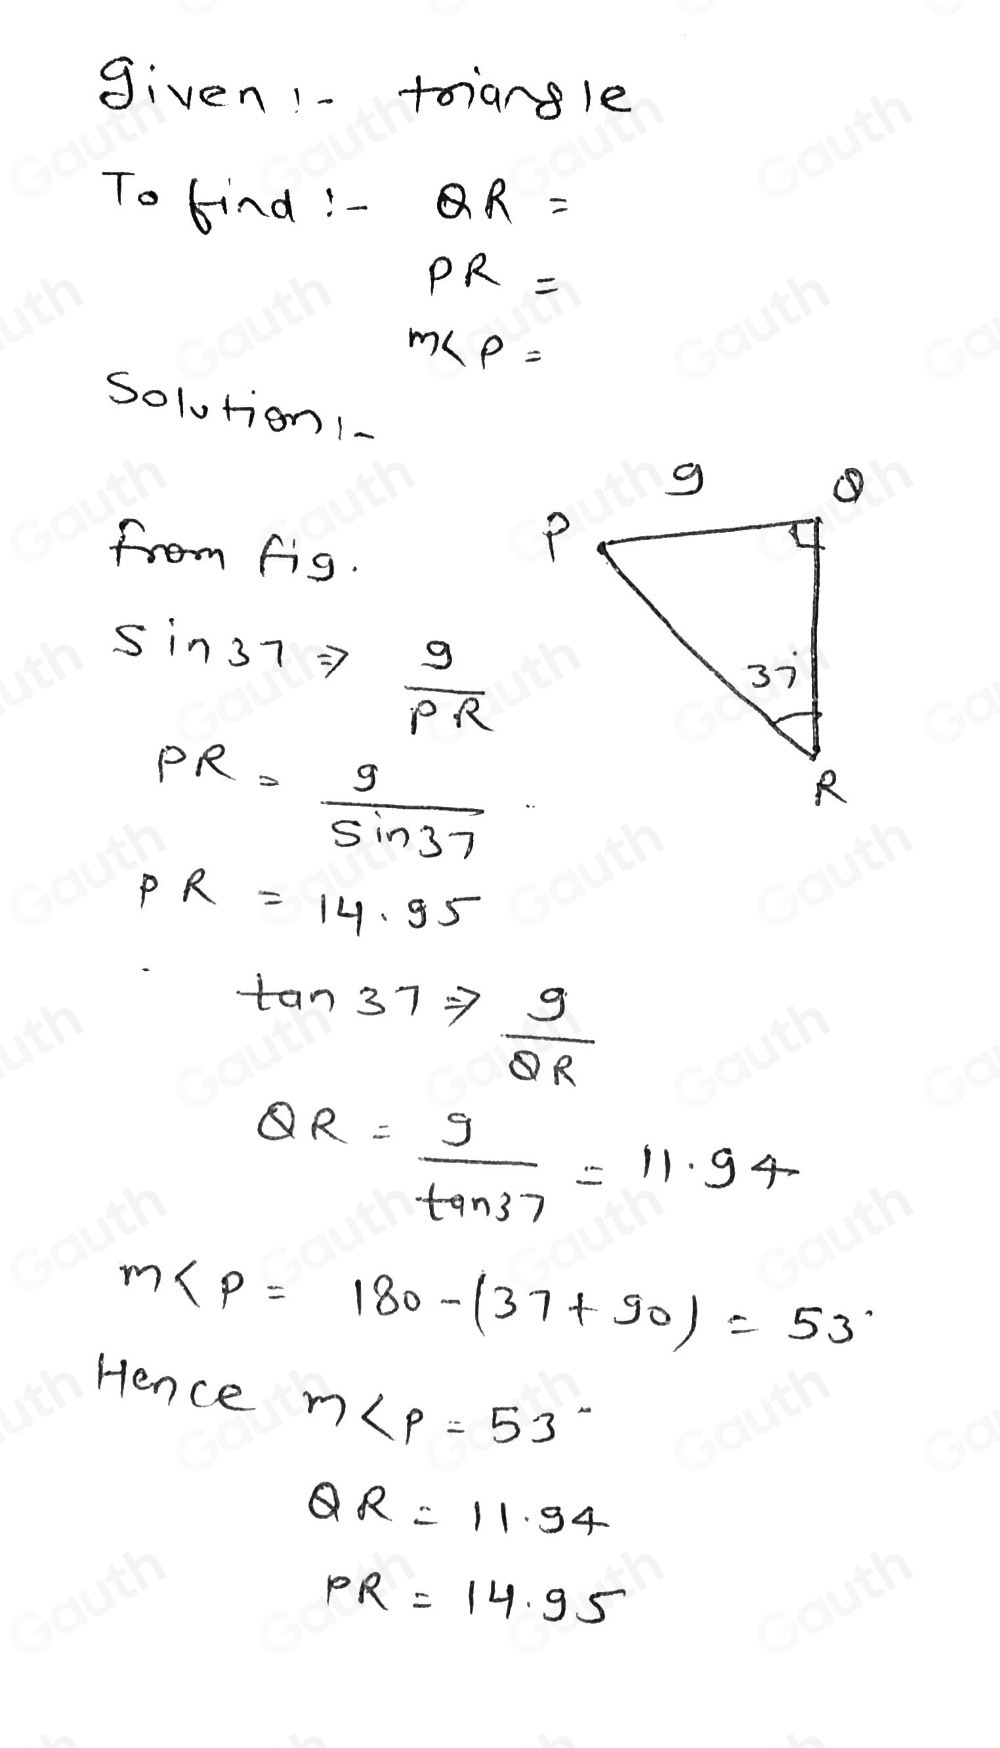 Given :- triangle
To find :- QR =
PR =
m<P =
Solution :-
9 Q
P
from fig.
Sin 37 ⇒ 9/PR
37°
PR = 9/Sin37
R
PR = 14.95
tan 37 ⇒ 9/QR
QR = 9/tan37 = 11.94
m<P = 180-(37+90) = 53°
Hence m<P = 53°
QR = 11.94
PR = 14.95
Gauth